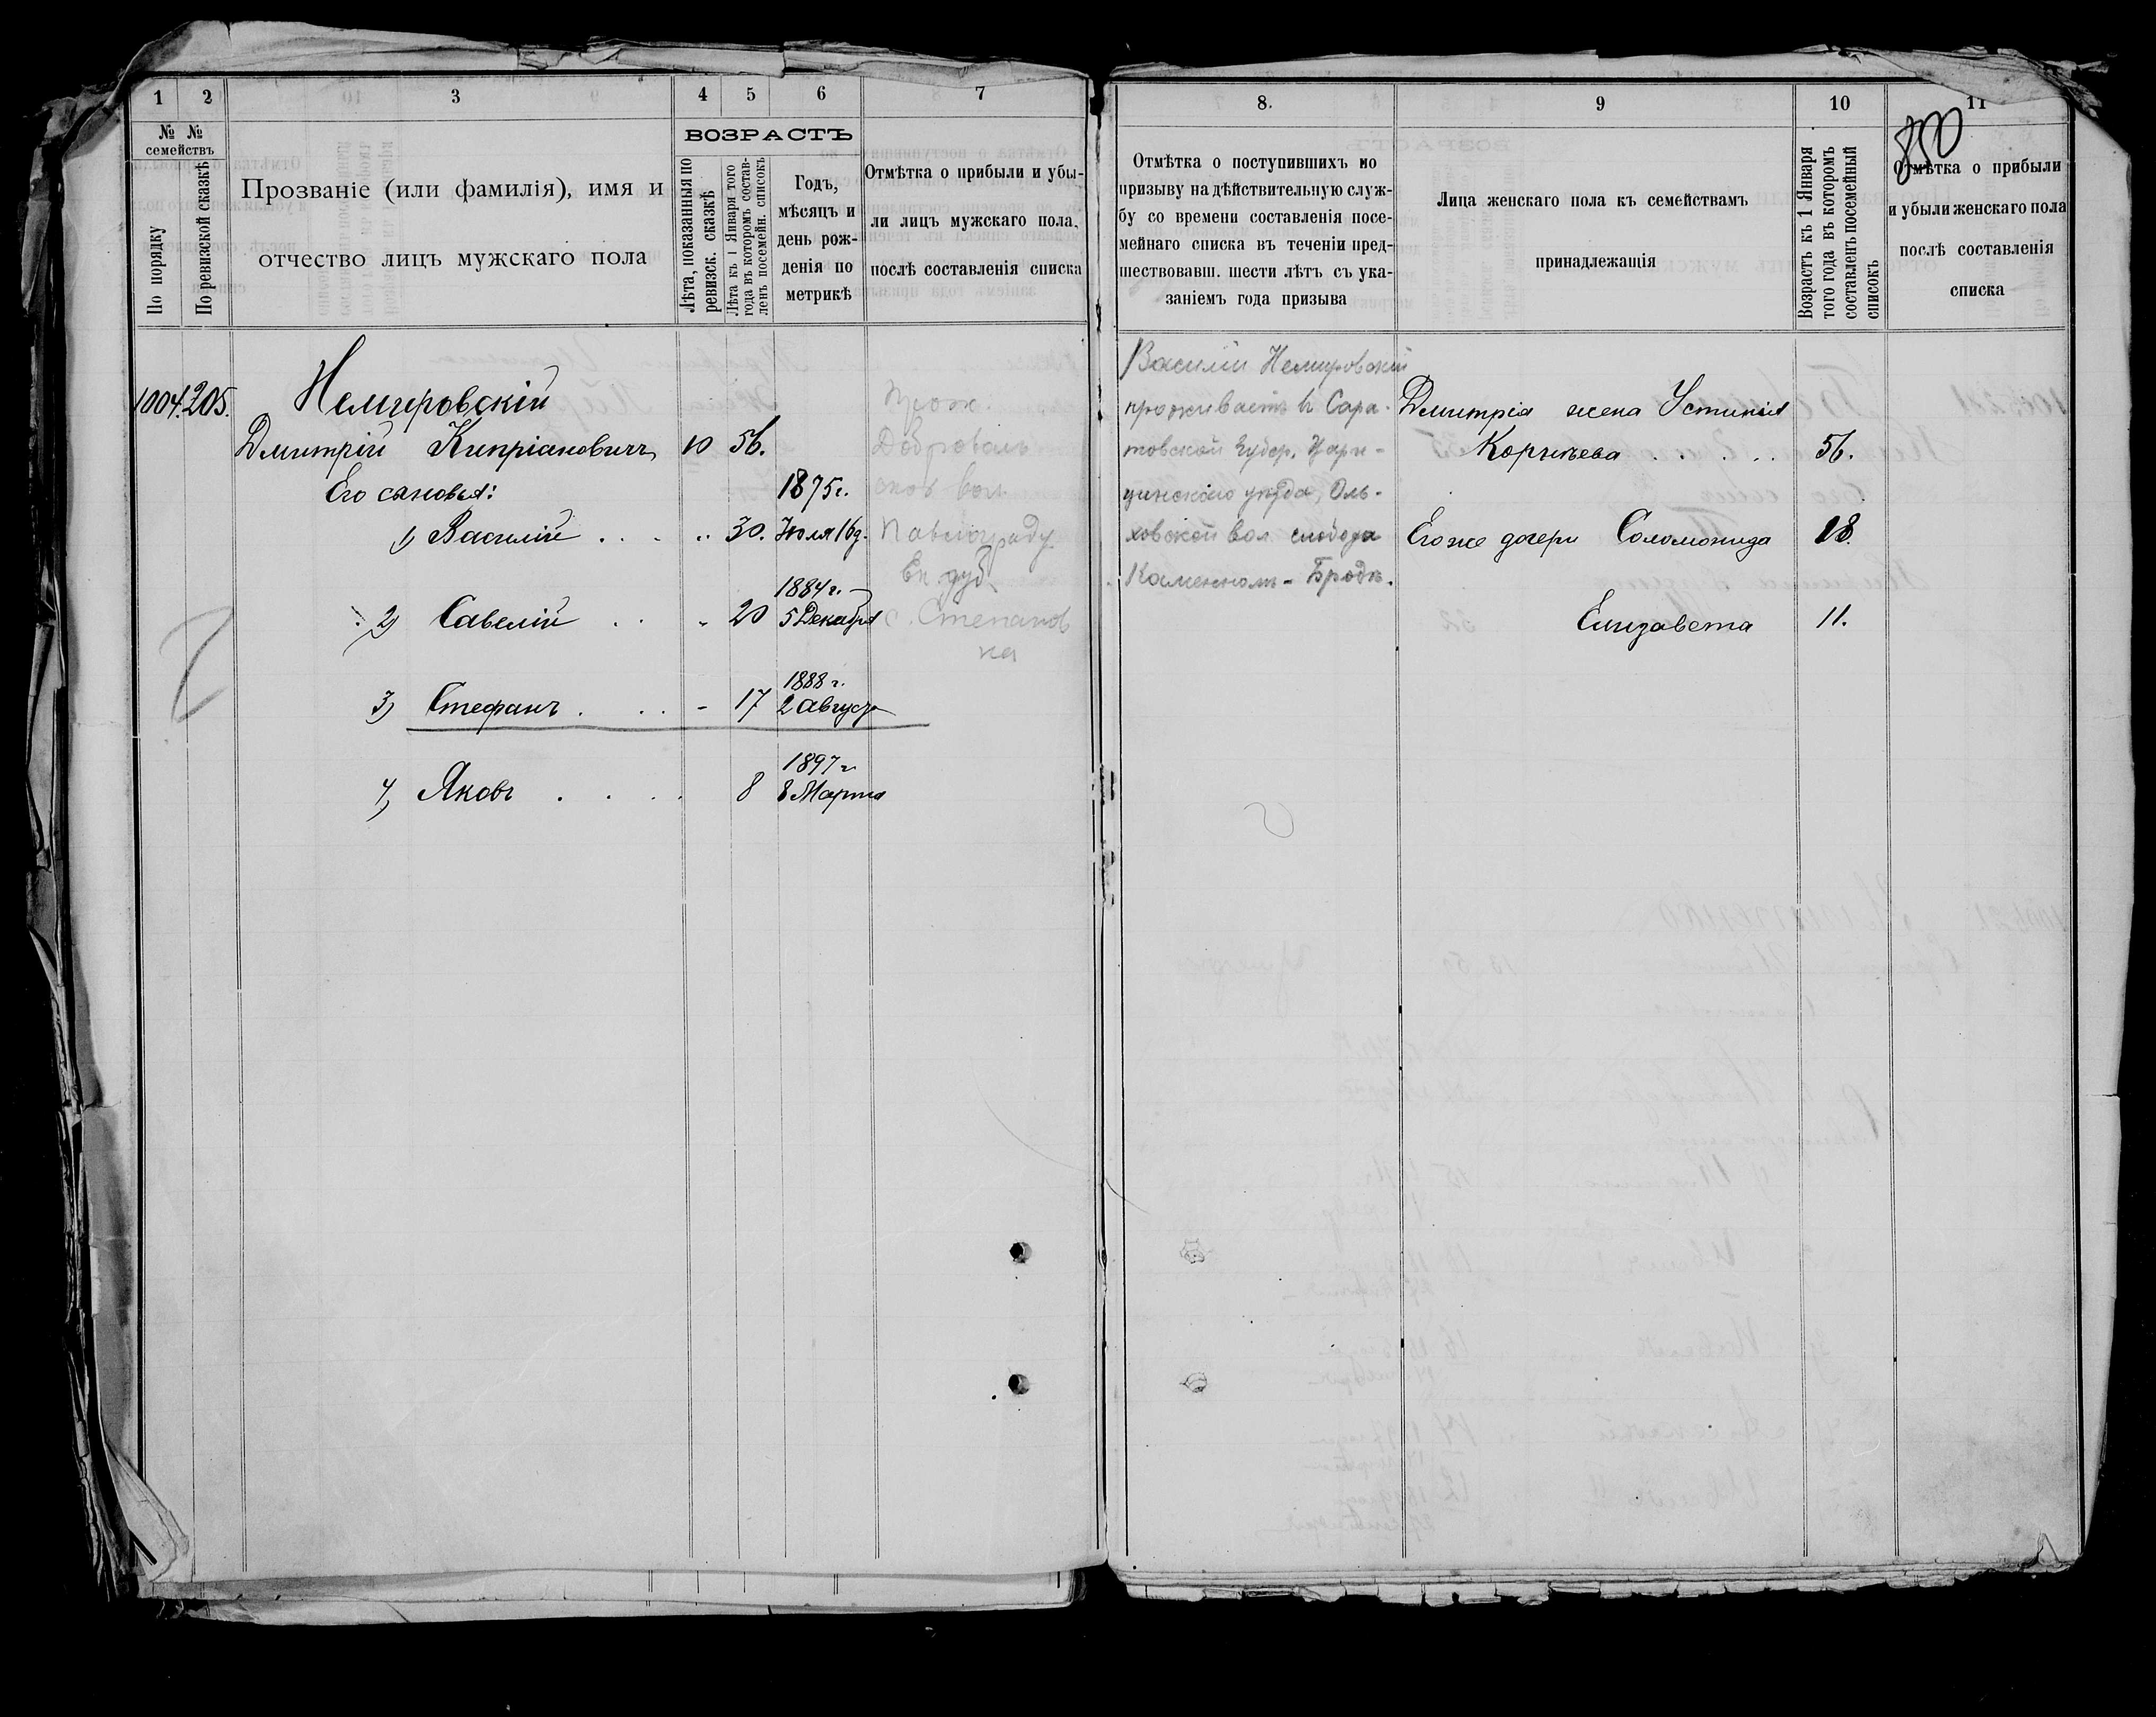 1
2
3
4
5
6
7
№ №
семействъ
По порядку
По ревизской сказкѣ
Прозваніе (или фамилія), имя и
отчество лицъ мужскаго пола
ВОЗРАСТЪ
Лѣта, показанныя по
ревизск. сказкѣ
Лѣта къ 1 Января того
года въ которомъ состав-
ленъ посемейн. списокъ
Годъ,
мѣсяцъ и
день рож-
денія по
метрикѣ
Отмѣтка о прибыли и убы-
ли лицъ мужскаго пола,
послѣ составленія списка
1004. 205.
Немировскій
Дмитрій Кипріановичъ 10 56.
Его сыновья: 1875 г.
1) Василій . . . .. 30. Юля 16 д.
1884 г.
2) Савелій . . . 20 5 Декабря
1888 г.
3) Стефанъ . . . - 17 2 Августа
1897 г.
4) Яковъ . . . . 8 8 Марта
Прож.
Доброволь
ской вол.
Павлоград. у
Ек. губ.
с. Степанов
ка
8.
9
10
11
850
Отмѣтка о поступившихъ по
призыву на дѣйствительную служ-
бу со времени составленія посе-
мейнаго списка въ теченіи пред-
шествовавш. шести лѣтъ съ ука-
заніемъ года призыва
Лица женскаго пола къ семействамъ
принадлежащія
Возрастъ къ 1 Января
того года въ которомъ
составленъ посемейный
списокъ
Отмѣтка о прибыли
и убыли женскаго пола
послѣ составленія
списка
Василій Немировскій
проживаетъ в Сара-
товской Губер. Цари-
цинскаго уѣзда, Оль-
ховской вол. слобода
Каменномъ-Бродѣ.
Дмитрія жена Устинія
Корнѣева . . . . 56.
Его же дочери Соломонида 18.
Елизавета 11.